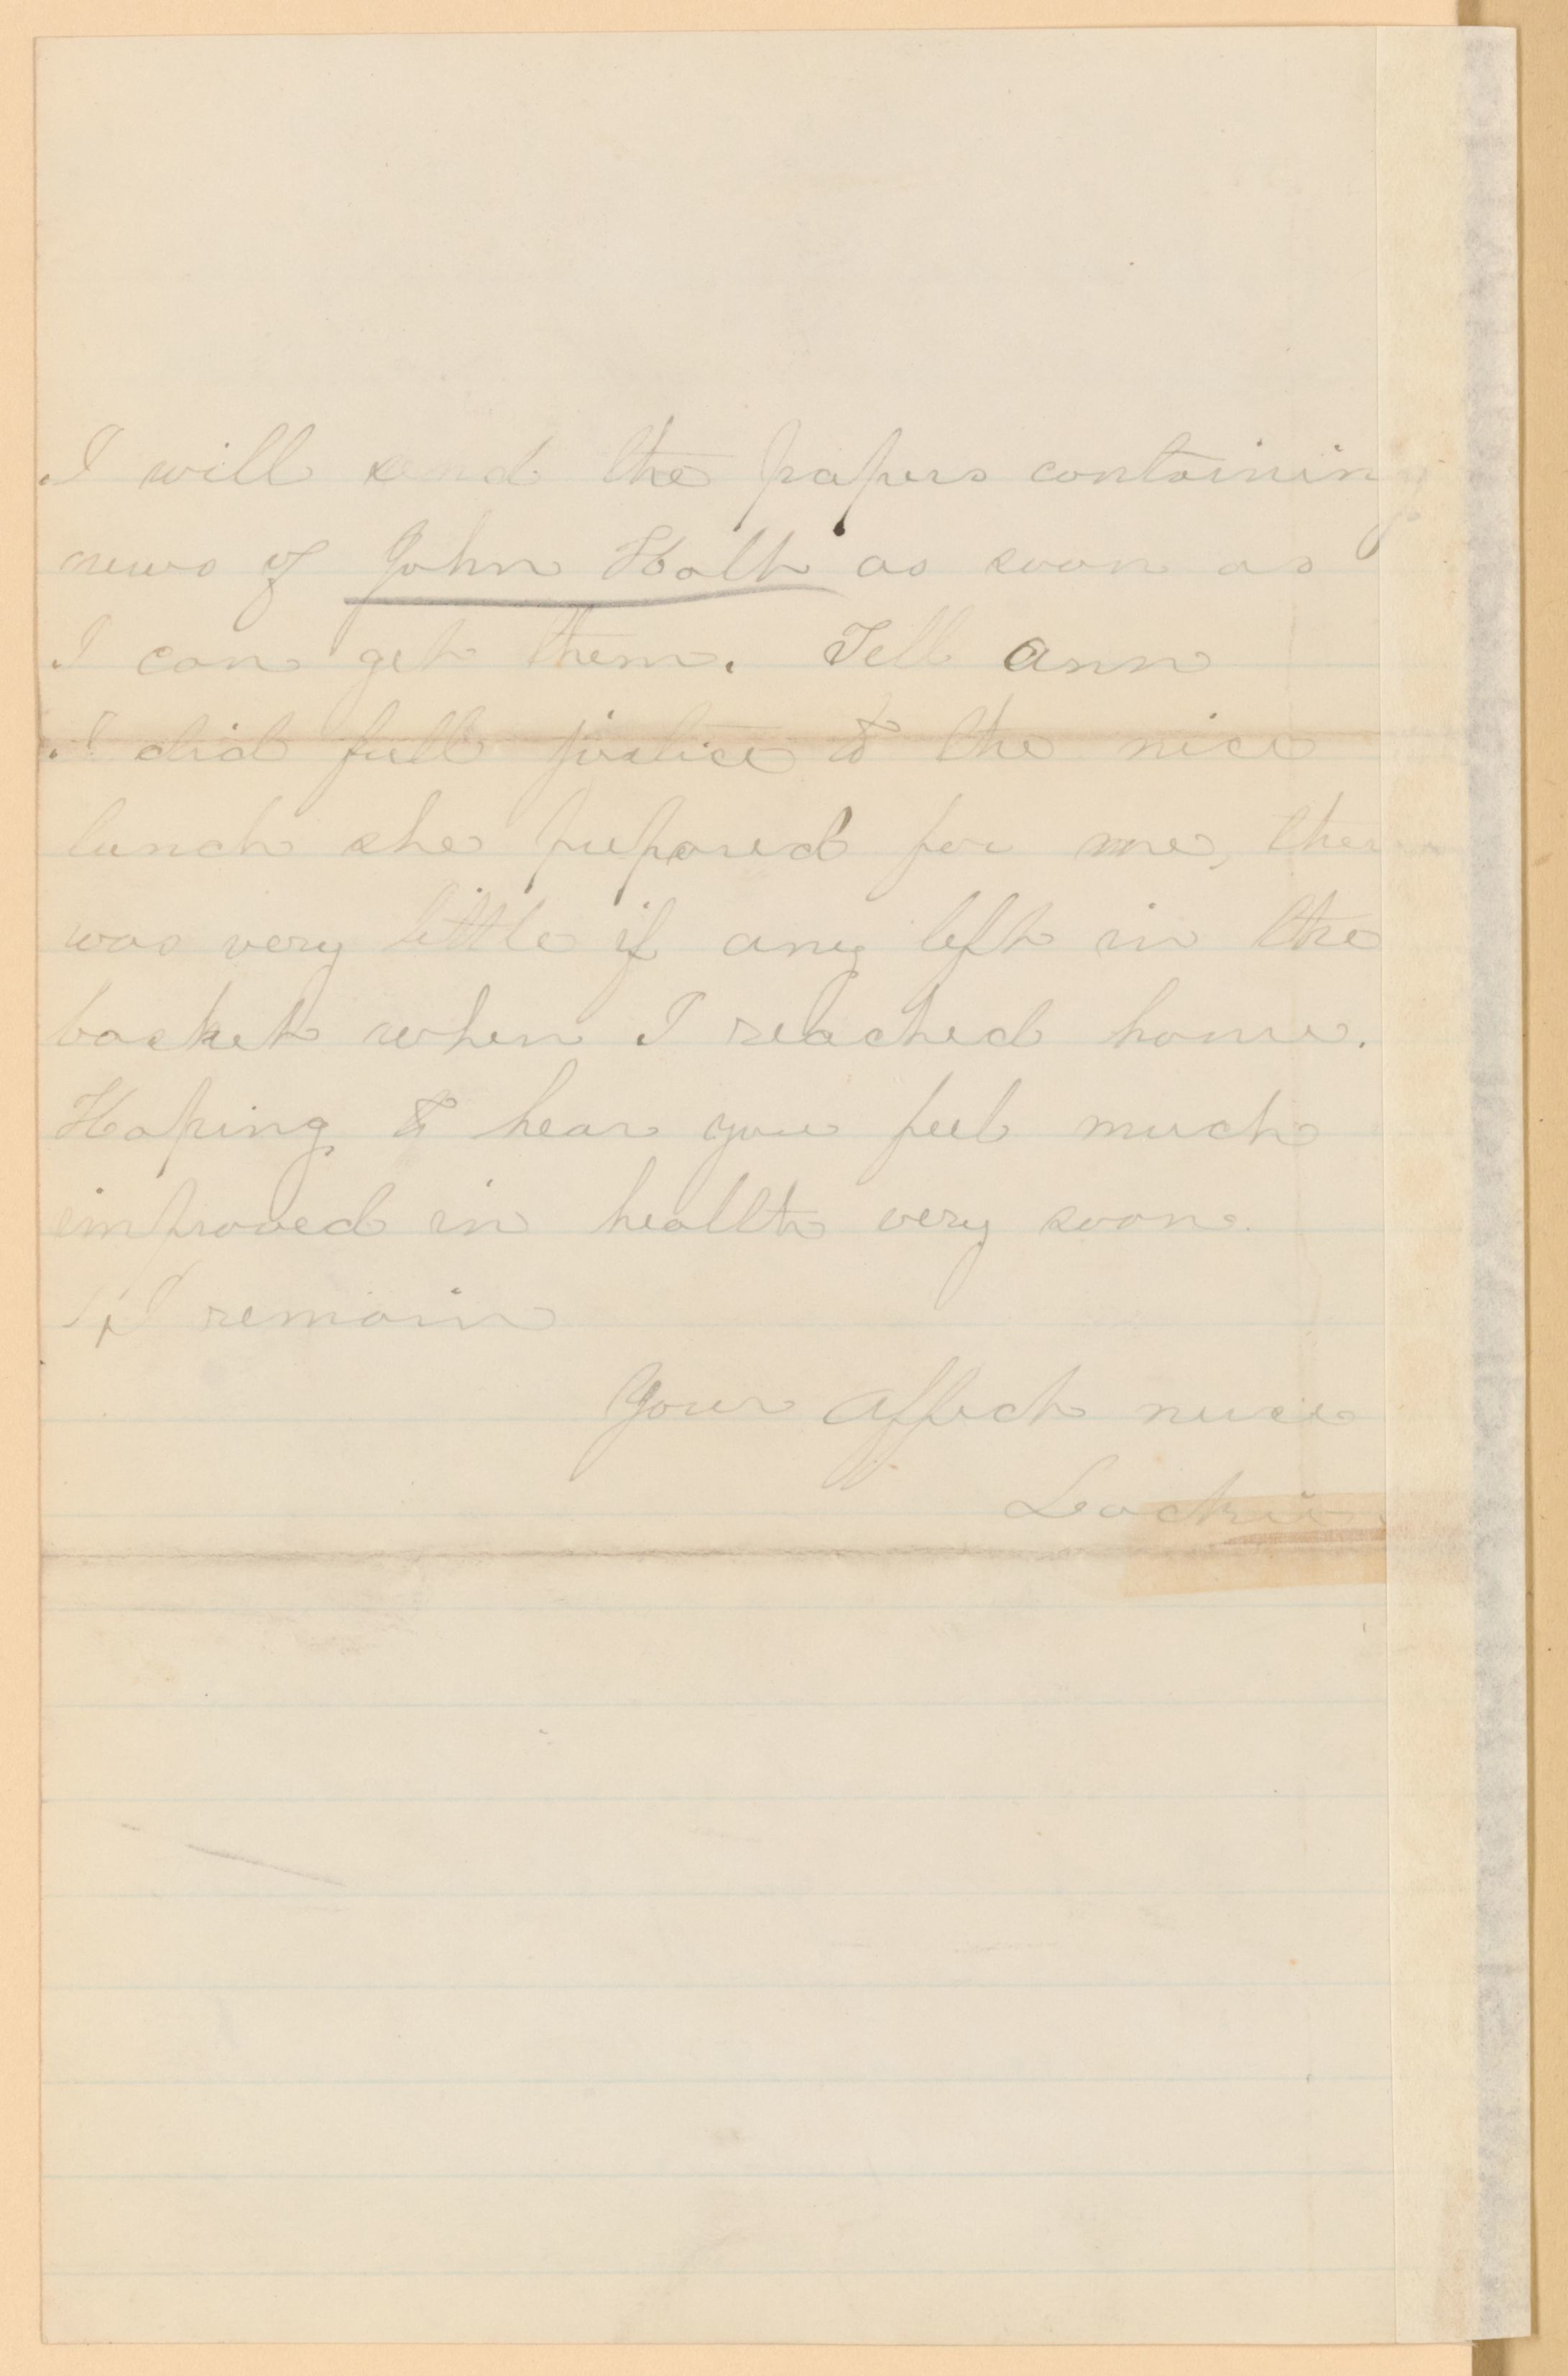 I will send the papers containing
news of John Holt as soon as
I can get them. Tell Ann
I did full justice to the nice
lunch she prepared for me, there
was very little if any left in the
basket when I reached home.
Hoping to hear you feel much
improved in health very soon.
I remain
Your affect niece